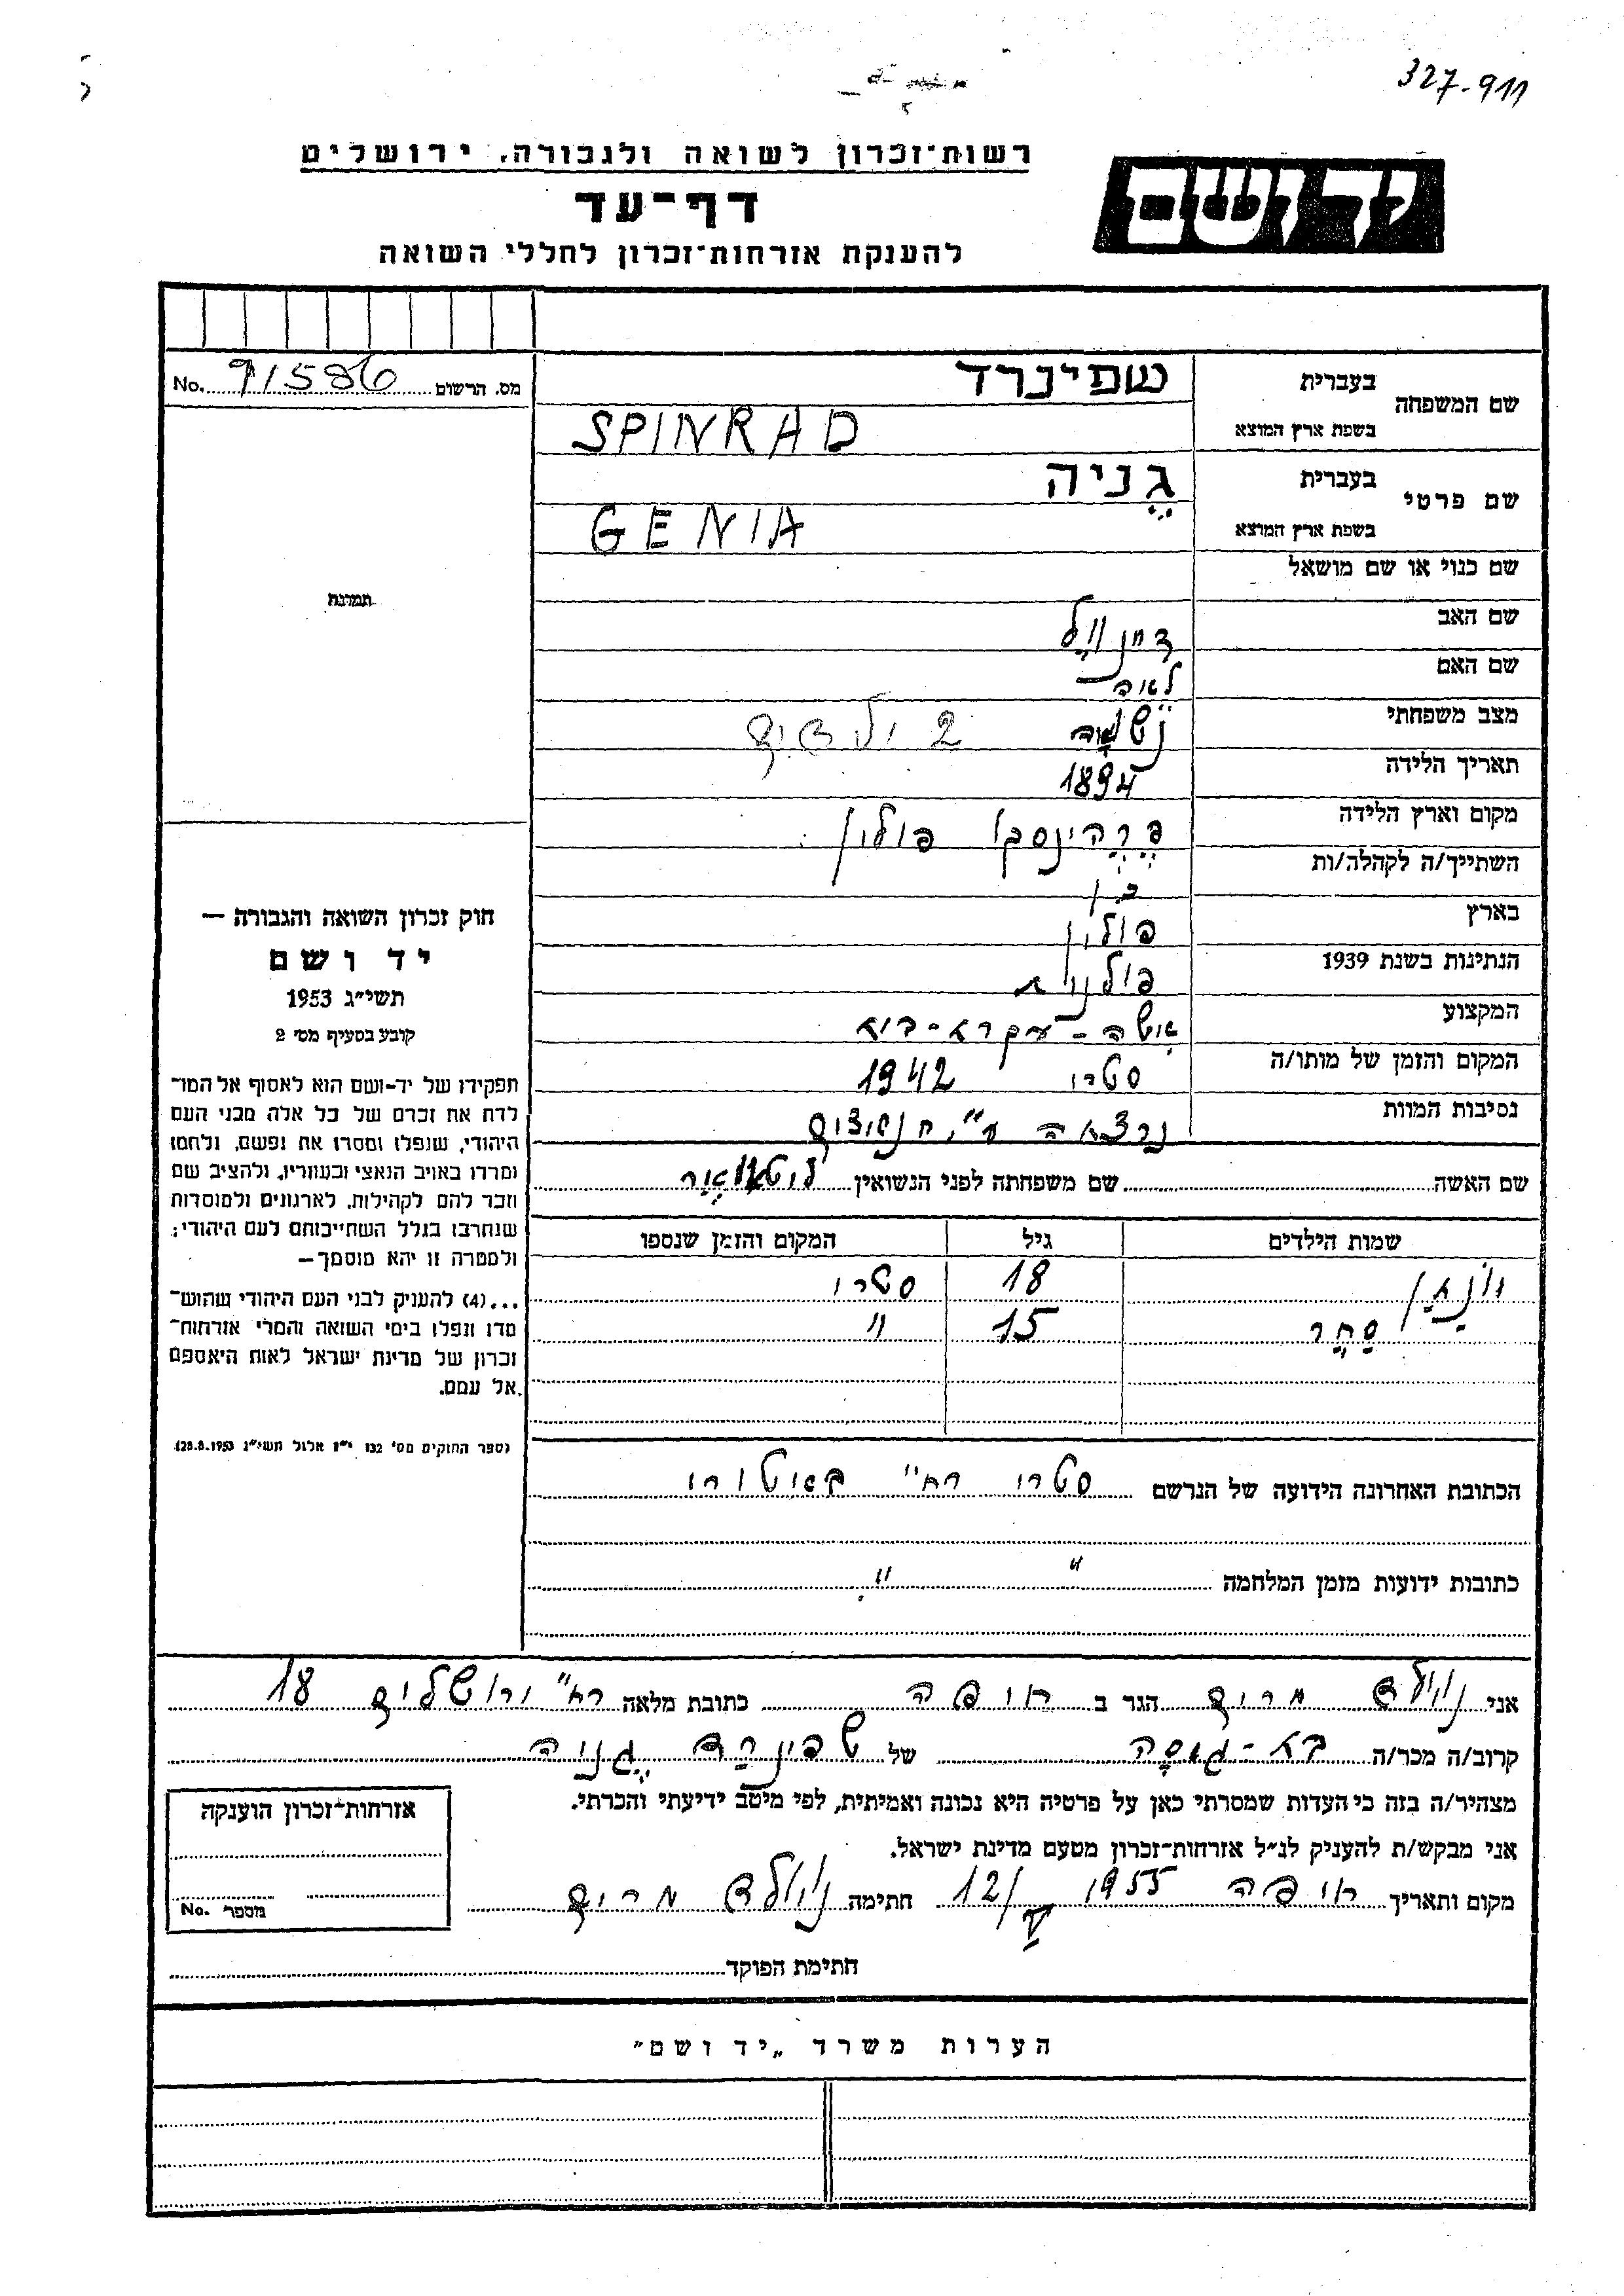 327-911
רשות־זכרון לשואה ולגבורה, ירושלים
יד ושם
דף־עד
להענקת אזרחות־זכרון לחללי השואה
מס. הרשום 91586 No.
שם המשפחה
בעברית שפינרד
בשפת ארץ המוצא SPINRAD
שם פרטי
בעברית גֶניה
בשפת ארץ המוצא GENIA
שם כנוי או שם מושאל
תמונה
שם האב
שם האם לאה
מצב משפחתי נשואה 2 ילדים
תאריך הלידה 1894
מקום וארץ הלידה פולין
השתייך/ה לקהלה/ות
בארץ פולין
הנתינות בשנת 1939 פולניה
המקצוע אשה - עקרת - בית
המקום והזמן של מותו/ה סטרי 1942
נסיבות המוות נרצחה ע"י הנאצים
שם האשה שם משפחתה לפני הנשואין
שמות הילדים גיל המקום והזמן שנספו
18 סטרי
15 "
הכתובת האחרונה הידועה של הנרשם סטרי רח' באטורי
כתובות ידועות מזמן המלחמה " "
חוק זכרון השואה והגבורה —
יד ושם
תשי״ג 1953
קובע בסעיף מס׳ 2
תפקידו של יד־ושם הוא לאסוף אל המו־
לדת את זכרם של כל אלה מבני העם
היהודי, שנפלו ומסרו את נפשם, נלחמו
ומרדו באויב הנאצי ובעוזריו, ולהציב שם
וזכר להם, לקהילות, לארגונים ולמוסדות
שנחרבו בגלל השתייכותם לעם היהודי;
ולמטרה זו יהא מוסמך—
...(4) להעניק לבני העם היהודי שהוש־
מדו ונפלו בימי השואה והמרי אזרחות־
זכרון של מדינת ישראל לאות היאספם
אל עמם.
(ספר החוקים מס׳ 132 י״ז אלול תשי״ג 28.8.1953)
אני מרים הגר ב חיפה כתובת מלאה רח' ירושלים 18
קרוב/ה מכר/ה בת - של שפינרד גֶניה
מצהיר/ה בזה כי העדות שמסרתי כאן על פרטיה היא נכונה ואמיתית, לפי מיטב ידיעתי והכרתי.
אני מבקש/ת להעניק לנ״ל אזרחות־זכרון מטעם מדינת ישראל.
מקום ותאריך חיפה 1955 12/V חתימה מרים
אזרחות־זכרון הוענקה
מספר No.
חתימת הפוקד
הערות משרד „יד ושם״